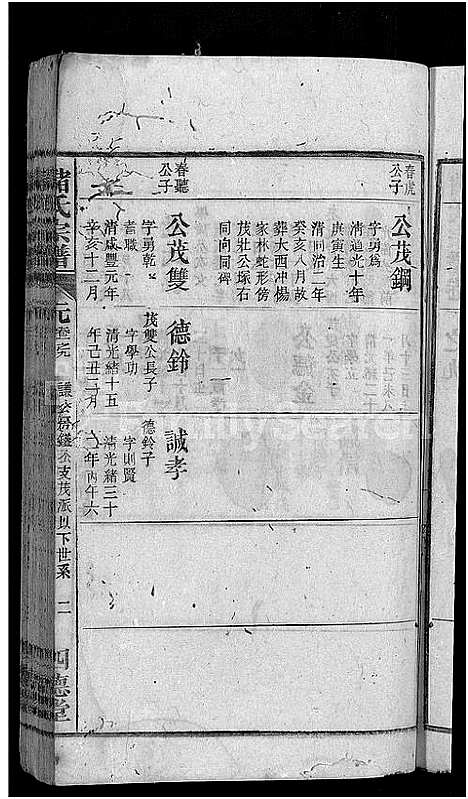 春虎
公子
公茂鋼
字勇為
清道光十年
庚寅生
清同治二年
癸亥八月故
葬大西冲楊
家林蛇形傍
茂壯公塚右
同向同碑
春聽
公子
公茂雙
字勇乾
耆職
清咸豐元年
辛亥十二月
德鈴
茂雙公長子
字學功
清光緒十五
年己丑二月
誠孝
德鈴子
字則賢
清光緒三十
二年丙午六
氏宗譜
元
謙公房錢公支茂派以下世系
二
四德堂
FamilySearch